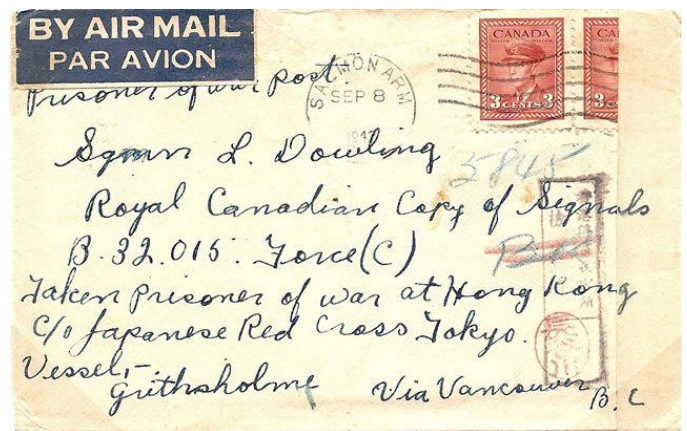 BY AIR MAIL
PAR AVION
CANADA
3 CENTS 3
CA
3
SALMON ARM
SEP 8
Prisoner of war post.
Sgmn L. Dowling
5845
Royal Canadian Copy of Signals
B. 32.015. Force (C)
Taken prisoner of war at Hong Kong
C/o Japanese Red Cross Tokyo.
Vessel,-.
Grithsholme Via Vancouver B.C